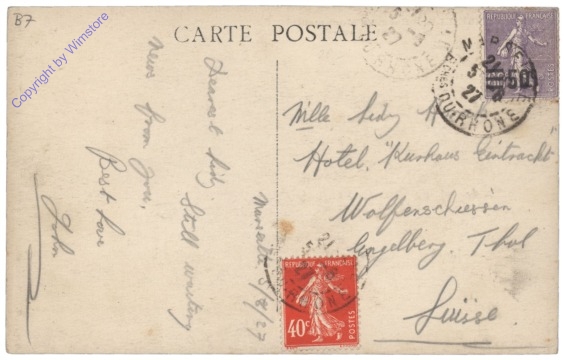 B7
Copyright by Wimstore
CARTE POSTALE
Marseille 5/8/27
Dearest
Still waiting
News from you,
Best love
John
Mlle
Hotel "Kurhaus Eintracht"
Wolfenschiessen
Engelberg. Thal
Suisse
REPUBLIQUE FRANÇAISE
50
POSTES
21
5 8
27
DU-RHONE
REPUBLIQUE FRANÇAISE
40c
POSTES